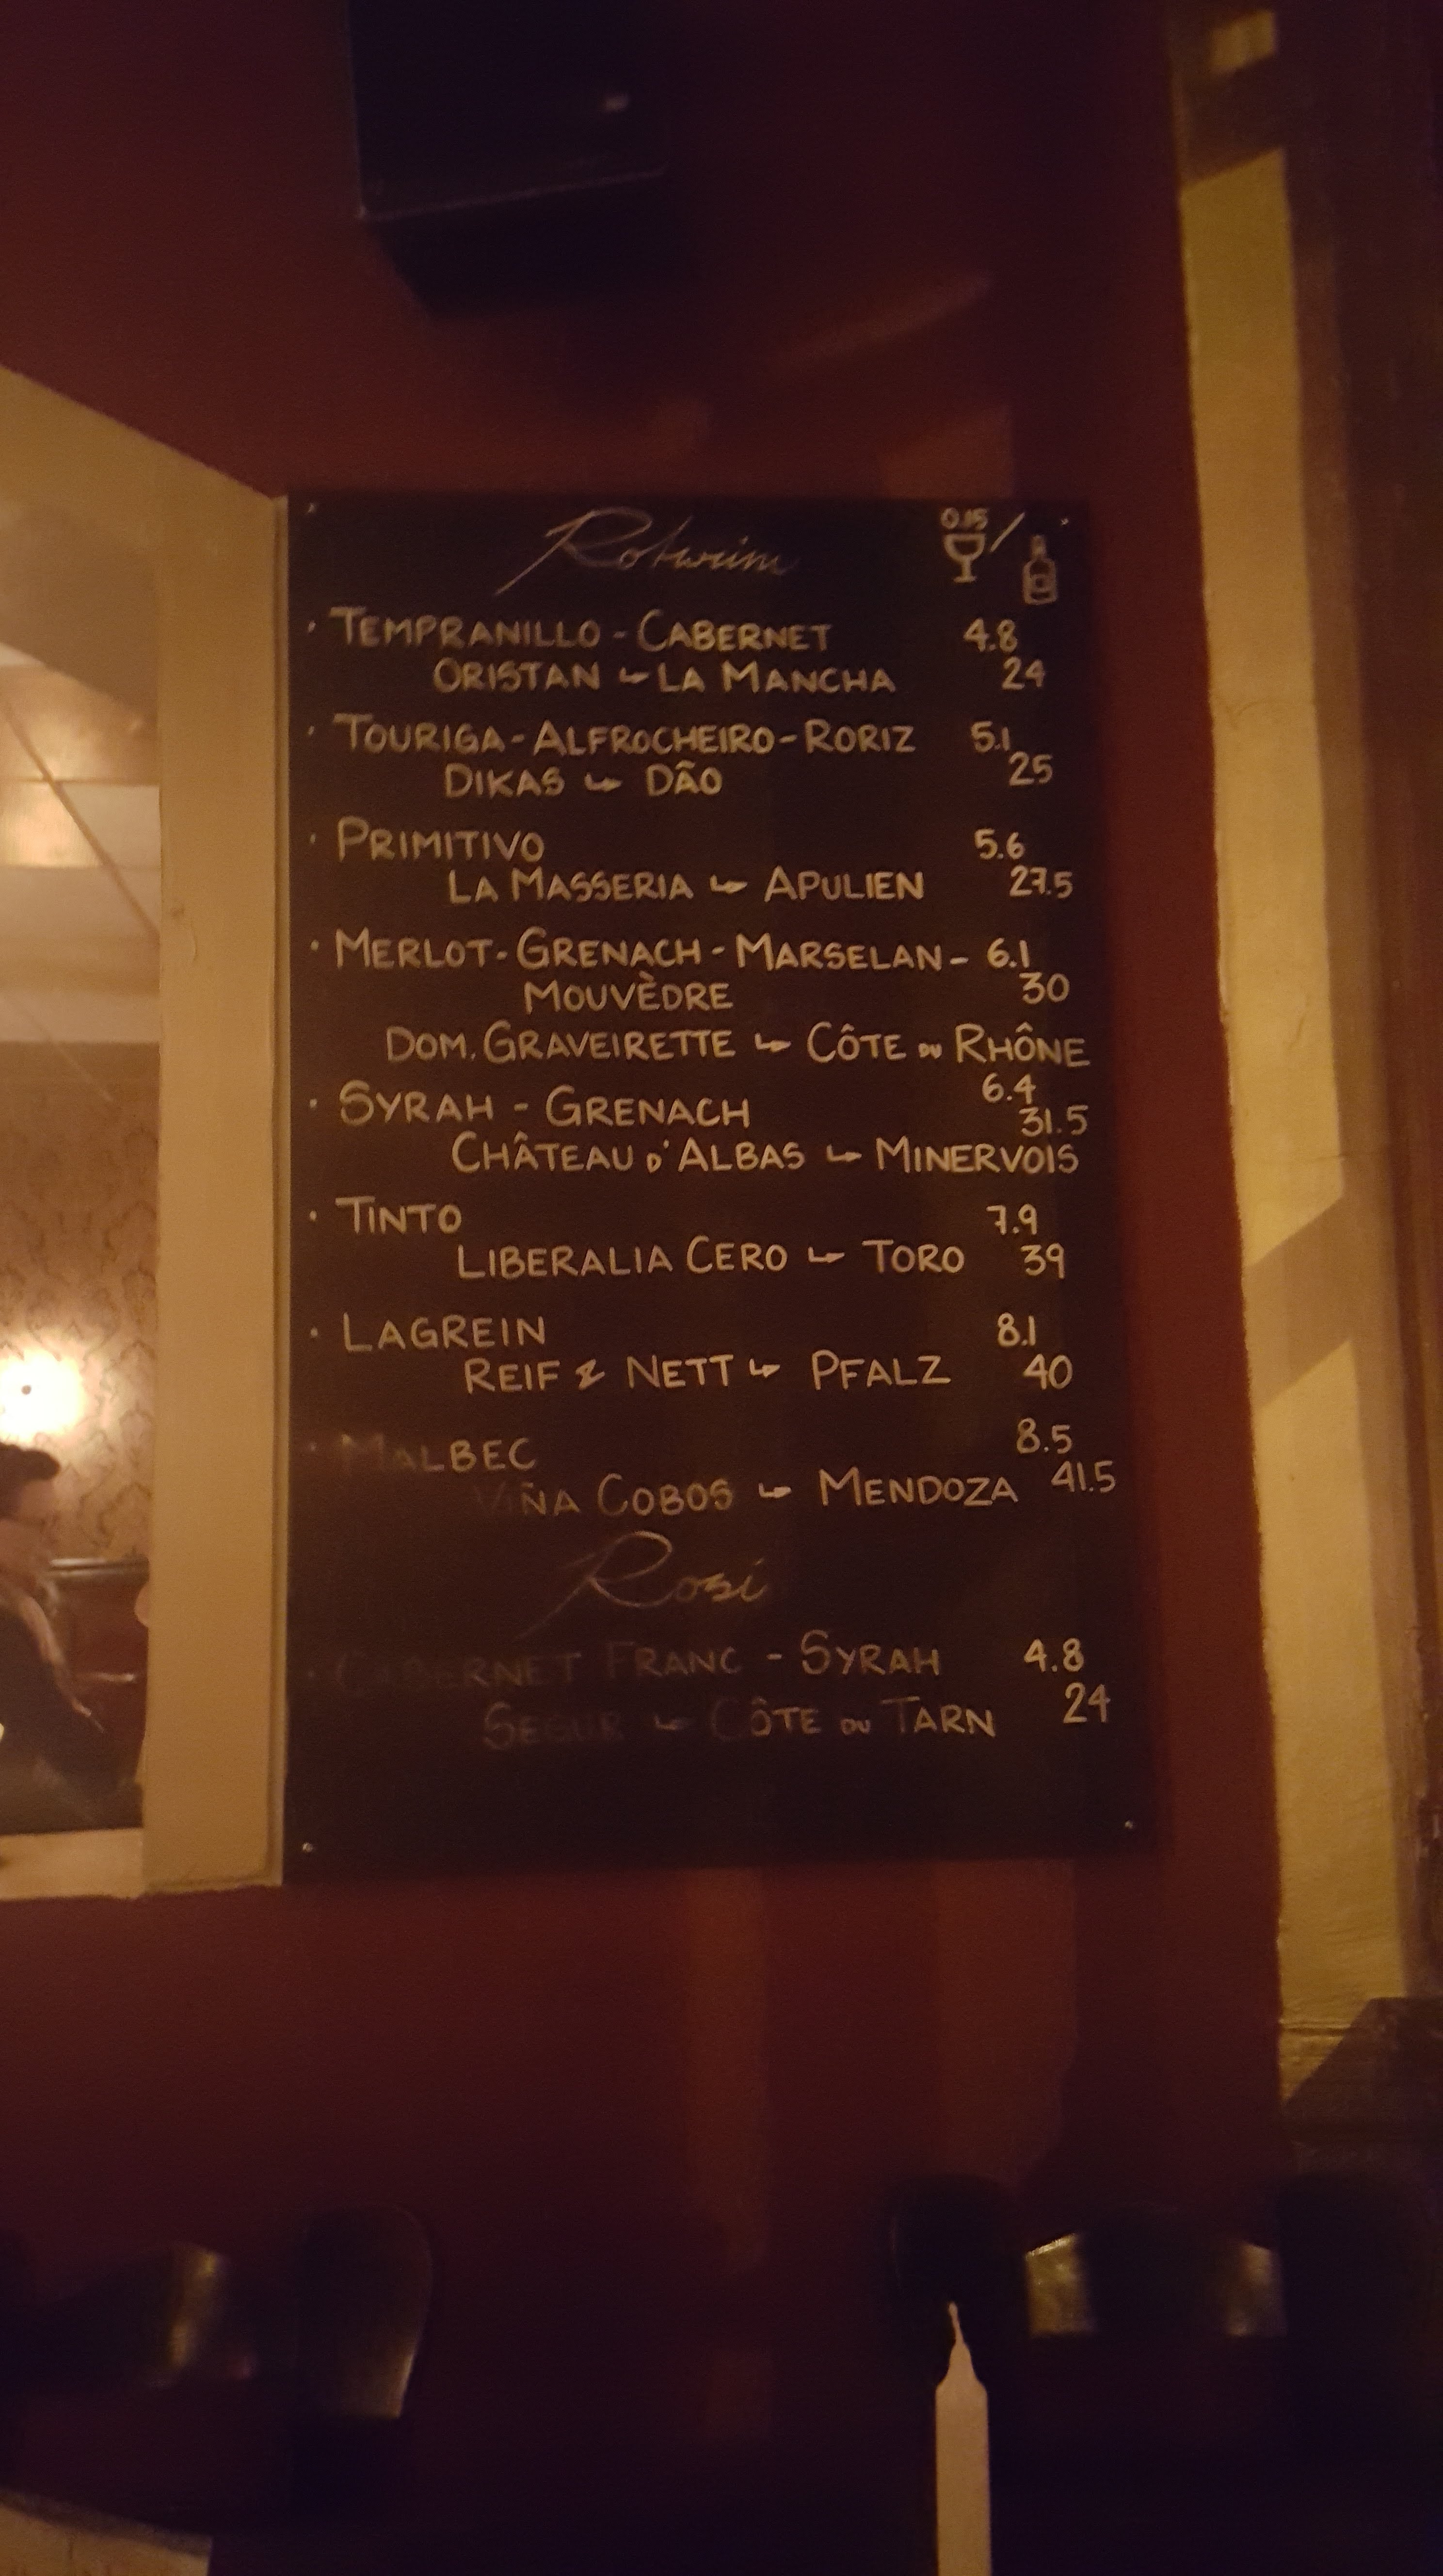 Rotwein 0.15 /
· TEMPRANILLO - CABERNET 4.8
ORISTAN ↳ LA MANCHA 24
· TOURIGA - ALFROCHEIRO - RORIZ 5.1
DIKAS ↳ DÃO 25
· PRIMITIVO 5.6
LA MASSERIA ↳ APULIEN 27.5
· MERLOT - GRENACH - MARSELAN - 6.1
MOUVÈDRE 30
DOM. GRAVEIRETTE ↳ CÔTE DU RHÔNE
· SYRAH - GRENACH 6.4
31.5
CHÂTEAU D'ALBAS ↳ MINERVOIS
· TINTO 7.9
LIBERALIA CERO ↳ TORO 39
· LAGREIN 8.1
REIF & NETT ↳ PFALZ 40
· MALBEC 8.5
VIÑA COBOS ↳ MENDOZA 41.5
Rosé
· CABERNET FRANC - SYRAH 4.8
SEGUR ↳ CÔTE DU TARN 24